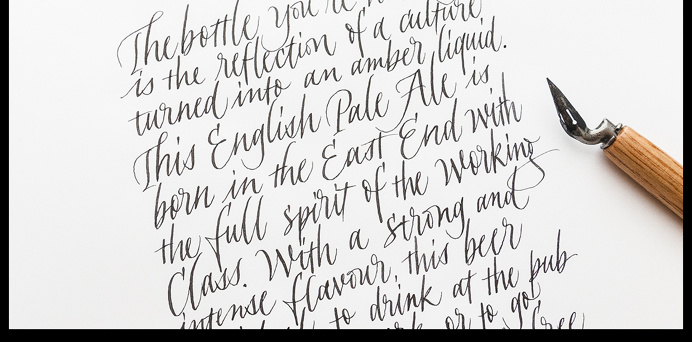 The bottle you're
is the reflection of a culture
turned into an amber liquid.
This English Pale Ale is
born in the East End with
the full spirit of the Working
Class. With a strong and
intense flavour, this beer
to drink at the pub
or to go
free